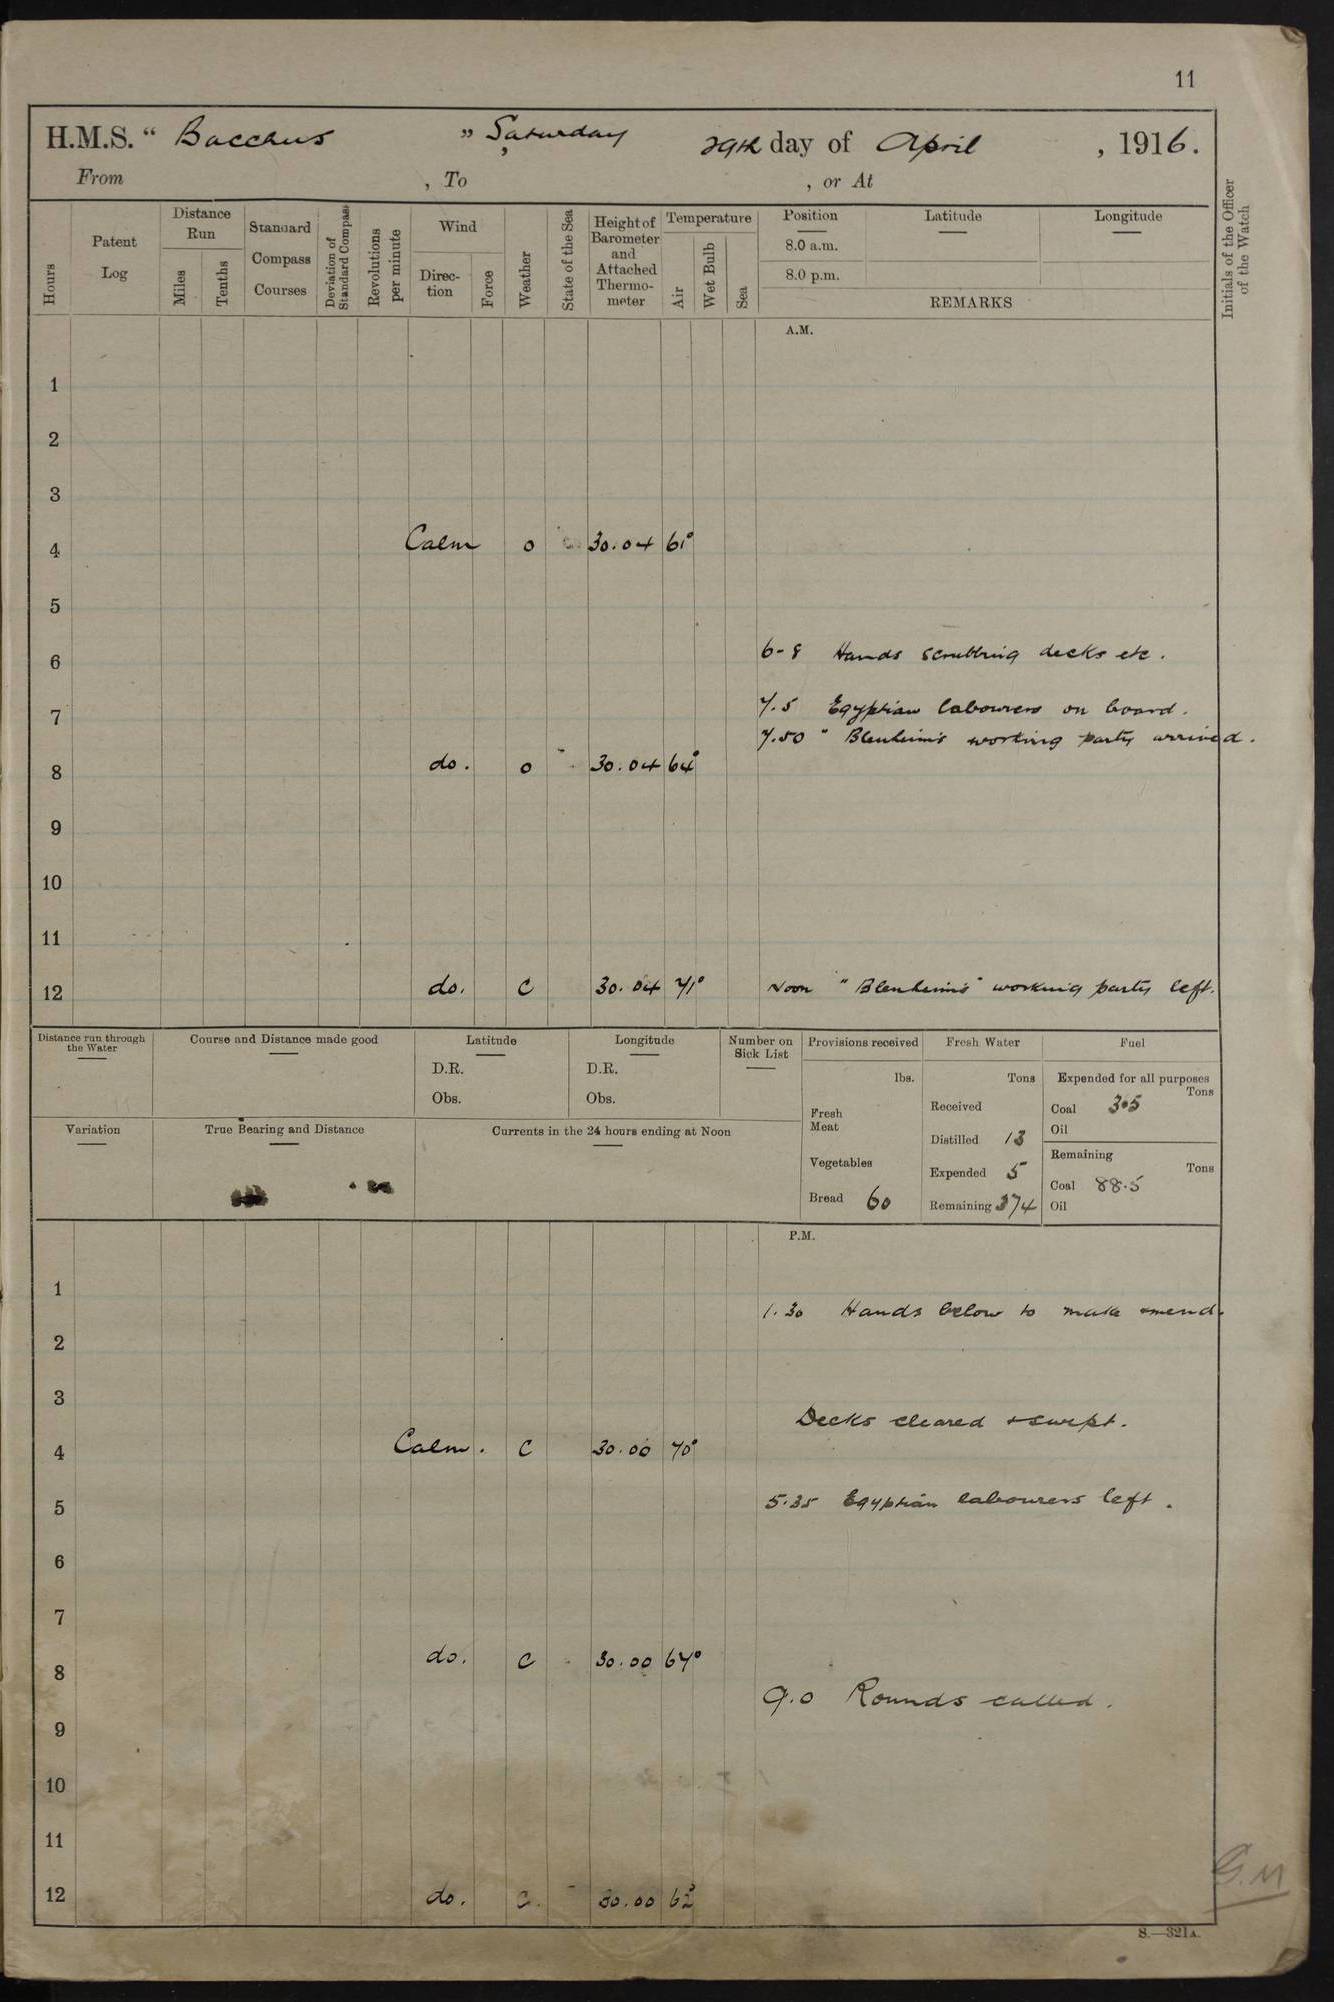 11
H.M.S. “ Bacchus ” Saturday, 29th day of April , 1916.
From , To , or At
Hours
Patent Log
Distance Run
Miles
Tenths
Standard Compass Courses
Deviation of Standard Compass
Revolutions per minute
Wind
Direc-tion
Force
Weather
State of the Sea
Height of Barometer and Attached Thermo-meter
Temperature
Air
Wet Bulb
Sea
Position Latitude Longitude
8.0 a.m.
8.0 p.m.
REMARKS
Initials of the Officer of the Watch
A.M.
1
2
3
4 Calm o 30.04 61°
5
6 6-8 Hands scrubbing decks etc.
7 7.5 Egyptian labourers on board.
7.50 " Blenheim's working party arrived.
8 do. o 30.04 64°
9
10
11
12 do. c 30.04 71° Noon "Blenheim's" working party left.
Distance run through the Water
Course and Distance made good
Latitude
D.R.
Obs.
Longitude
D.R.
Obs.
Number on Sick List
Variation
True Bearing and Distance
Currents in the 24 hours ending at Noon
Provisions received
lbs.
Fresh Meat
Vegetables
Bread 60
Fresh Water
Tons
Received
Distilled 13
Expended 5
Remaining 374
Fuel
Expended for all purposes
Tons
Coal 3.5
Oil
Remaining
Tons
Coal 88.5
Oil
P.M.
1 1.30 Hands below to make & mend.
2
3 Decks cleared & swept.
4 Calm. c 30.00 70°
5 5.35 Egyptian labourers left.
6
7
8 do. c 30.00 67°
9.0 Rounds called.
9
10
11
12 do. c. 30.00 62°
G.M
S.—321A.